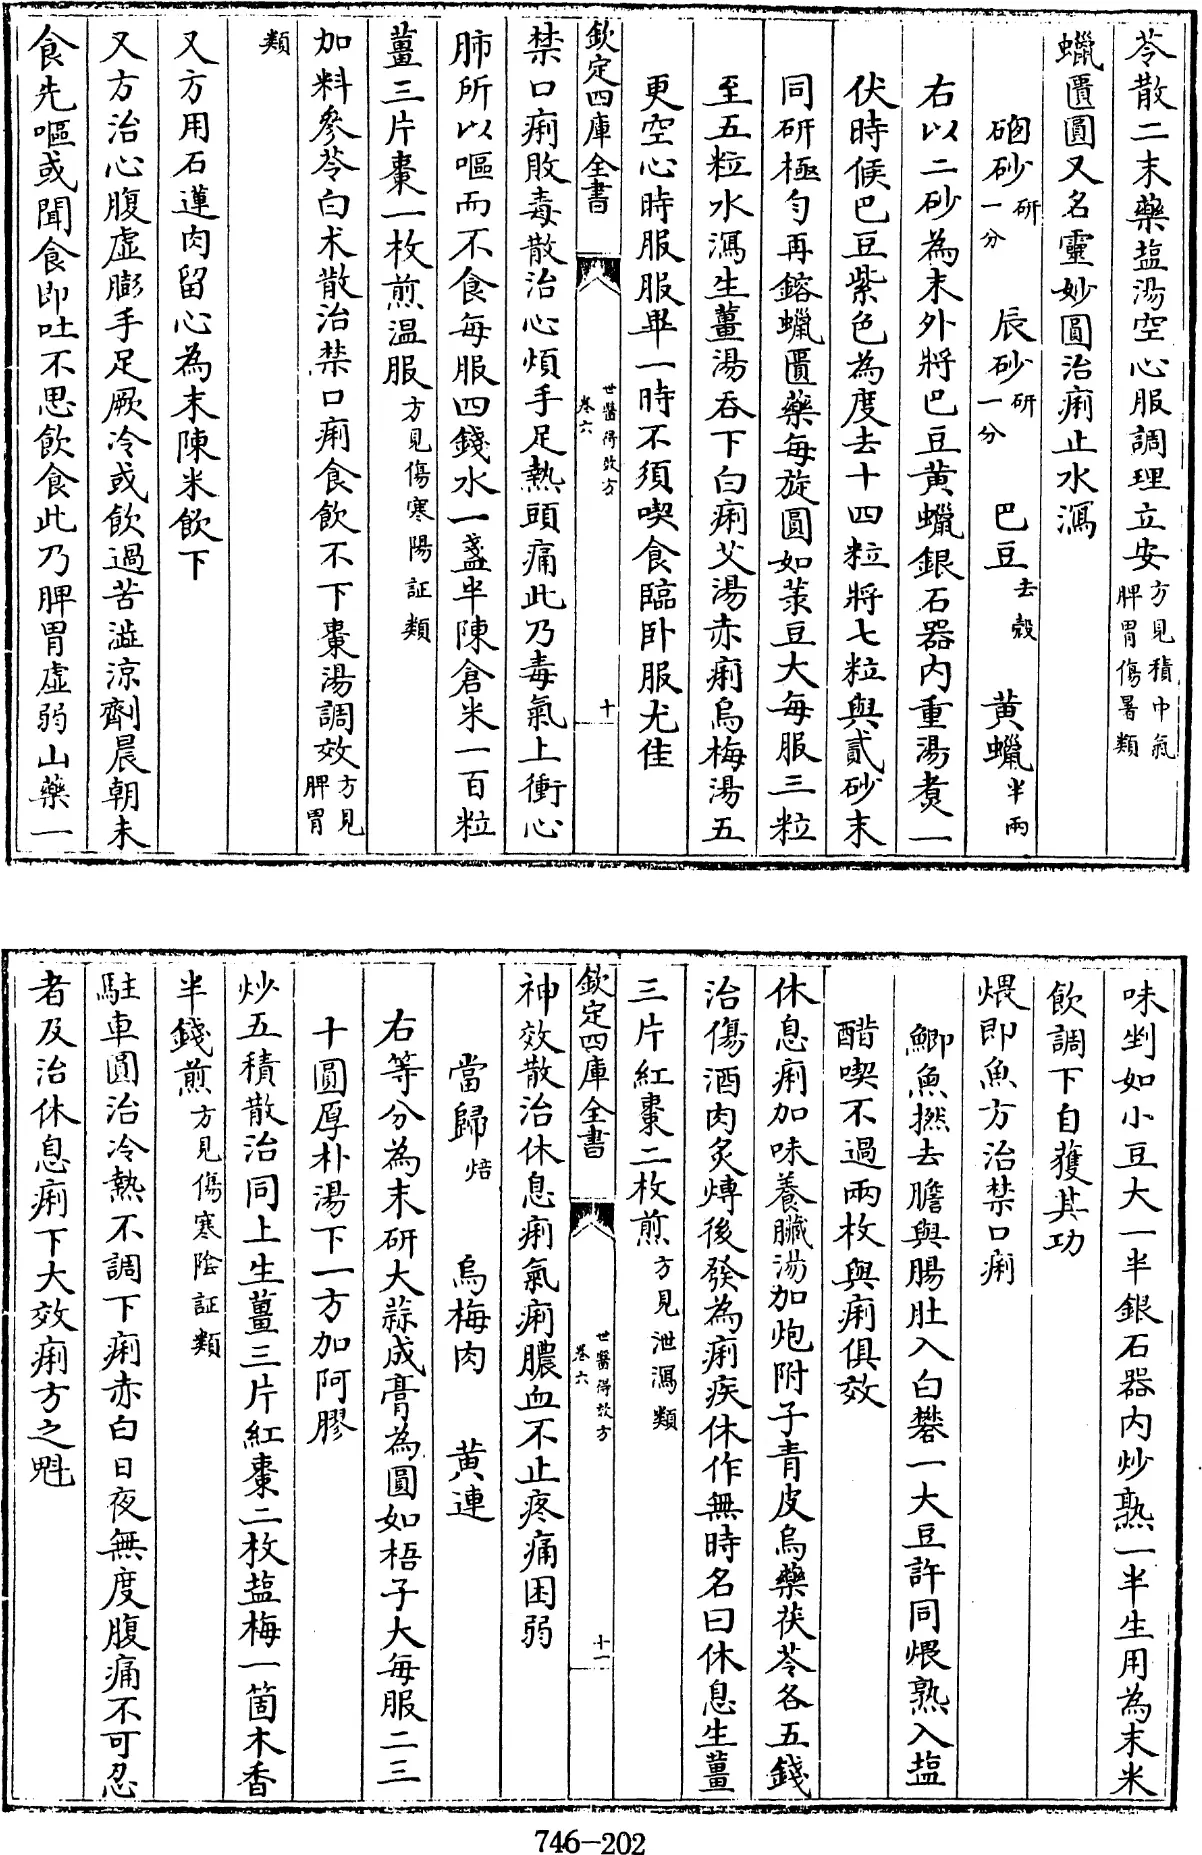 苓散二末藥塩湯空心服調理立安方見積中氣脾胃傷暑類
蠟匱圓又名靈妙圓治痢止水瀉
硇砂研一分 辰砂研一分 巴豆去殼 黄蠟半兩
右以二砂為末外將巴豆黄蠟銀石器内重湯煮一
伏時候巴豆紫色為度去十四粒將七粒與貳砂末
同研極勻再鎔蠟匱藥每旋圓如菉豆大每服三粒
至五粒水瀉生薑湯吞下白痢艾湯赤痢烏梅湯五
更空心時服服畢一時不須喫食臨卧服尤佳
欽定四庫全書 世醫得效方 卷六 十
禁口痢敗毒散治心煩手足熱頭痛此乃毒氣上衝心
肺所以嘔而不食每服四錢水一盞半陳倉米一百粒
薑三片棗一枚煎温服方見傷寒陽証類
加料參苓白术散治禁口痢食飲不下棗湯調效方見脾胃
類
又方用石蓮肉留心為末陳米飲下
又方治心腹虛膨手足厥冷或飲過苦澁涼劑晨朝未
食先嘔或聞食即吐不思飲食此乃脾胃虛弱山藥一
味剉如小豆大一半銀石器内炒熟一半生用為末米
飲調下自獲其功
煨即魚方治禁口痢
鯽魚撚去膽與腸肚入白礬一大豆許同煨熟入塩
醋喫不過兩枚與痢俱效
休息痢加味養臟湯加炮附子青皮烏藥茯苓各五錢
治傷酒肉炙煿後發為痢疾休作無時名曰休息生薑
三片紅棗二枚煎方見泄瀉類
欽定四庫全書 世醫得效方 卷六 十一
神效散治休息痢氣痢膿血不止疼痛困弱
當歸焙 烏梅肉 黄連
右等分為末研大蒜成膏為圓如梧子大每服二三
十圓厚朴湯下一方加阿膠
炒五積散治同上生薑三片紅棗二枚塩梅一箇木香
半錢煎方見傷寒陰証類
駐車圓治冷熱不調下痢赤白日夜無度腹痛不可忍
者及治休息痢下大效痢方之魁
746–202